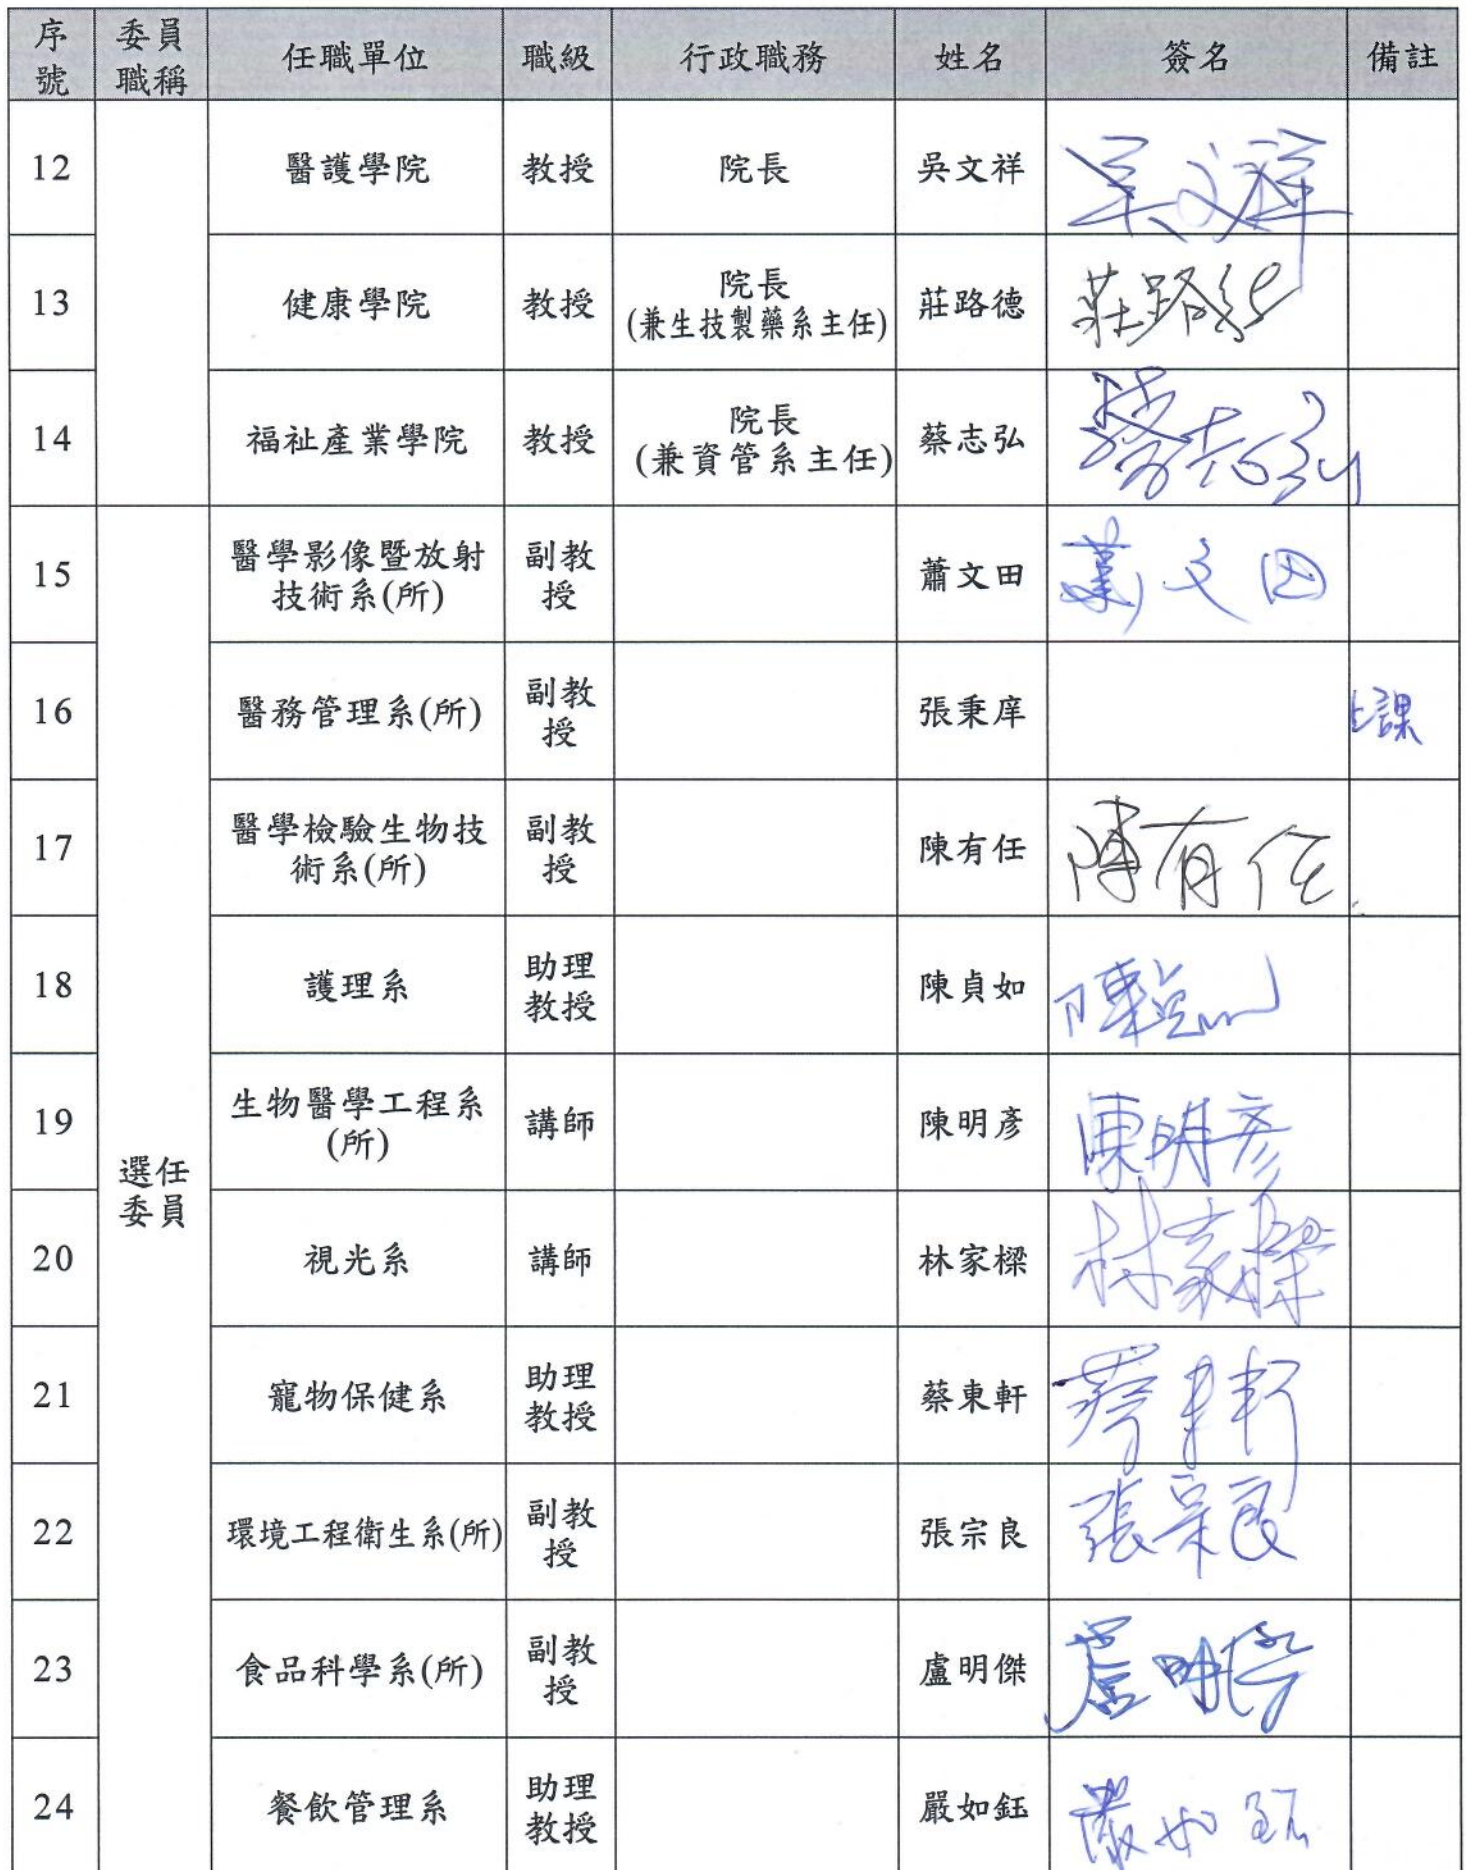 序號 委員職稱 任職單位 職級 行政職務 姓名 簽名 備註
12 醫護學院 教授 院長 吳文祥 吳文祥
13 健康學院 教授 院長 (兼生技製藥系主任) 莊路德 莊路德
14 福祉產業學院 教授 院長 (兼資管系主任) 蔡志弘 蔡志弘
15 醫學影像暨放射技術系(所) 副教授 蕭文田 蕭文田
16 醫務管理系(所) 副教授 張秉庠 上課
17 醫學檢驗生物技術系(所) 副教授 陳有任 陳有任
18 護理系 助理教授 陳貞如 陳貞如
19 生物醫學工程系(所) 講師 陳明彥 陳明彥
選任委員
20 視光系 講師 林家樑 林家樑
21 寵物保健系 助理教授 蔡東軒 蔡東軒
22 環境工程衛生系(所) 副教授 張宗良 張宗良
23 食品科學系(所) 副教授 盧明傑 盧明傑
24 餐飲管理系 助理教授 嚴如鈺 嚴如鈺